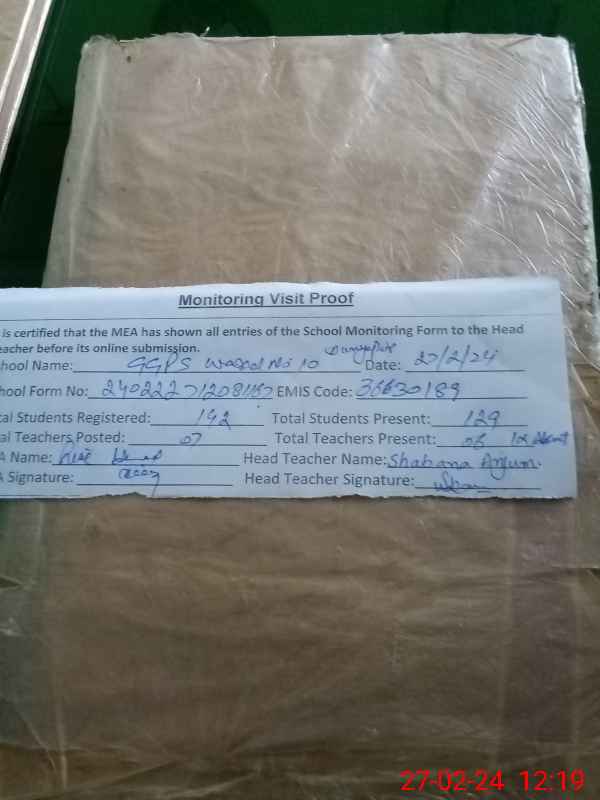 Monitoring Visit Proof
is certified that the MEA has shown all entries of the School Monitoring Form to the Head
eacher before its online submission.
hool Name: GGPS Wasool No 10 Dunyapur Date: 27/2/24
hool Form No: EMIS Code: 36630189
tal Students Registered: 192 Total Students Present: 129
al Teachers Posted: 07 Total Teachers Present: 06
A Name: Head Teacher Name: Shabana Anjum.
A Signature: Head Teacher Signature:
27-02-24 12:19